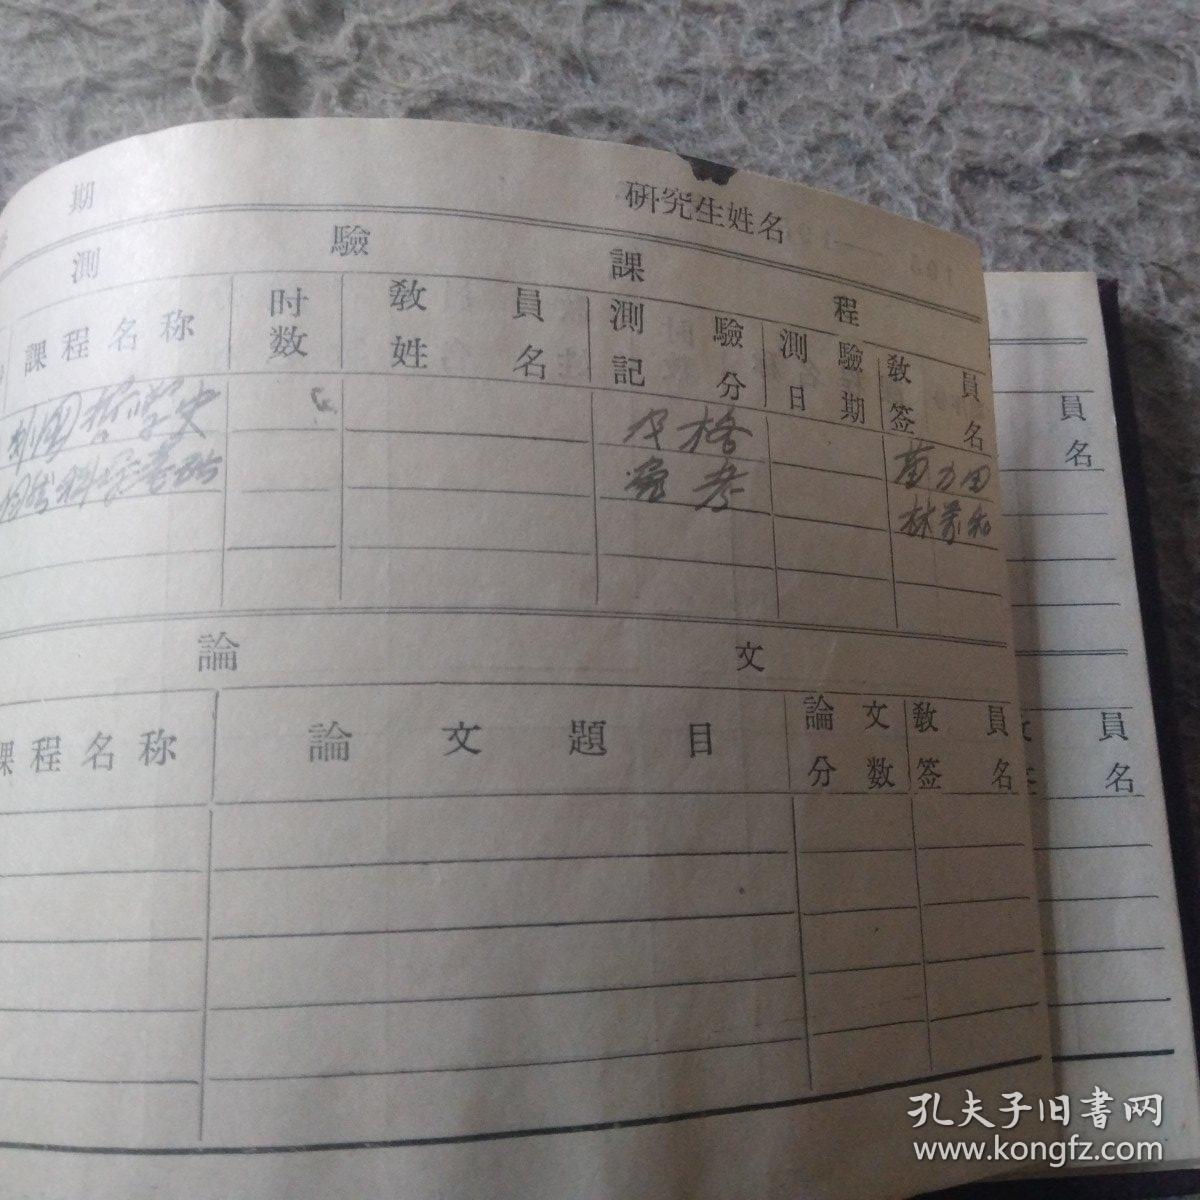 期 研究生姓名
測 驗 課 程
課程名称 时数 教員姓名 測驗記分 測驗日期 教員签名
哲学史 及格 苗力田
自然科学基础 免考
論 文
課程名称 論文題目 論文分数 教員签名
員名
員名
孔夫子旧書网
www.kongfz.com